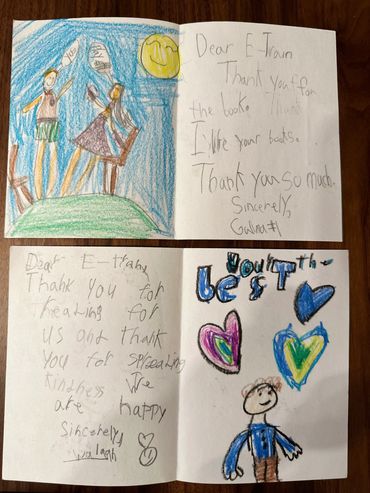 Dear E-Train
Thank you for
the book. Thank
I like your books.
Thank you so much.
Sincerely,
Dear E-train,
Thank you for
Reading for
us and thank
you for spreading
kindness We
are happy
Sincerely,
Your the
best